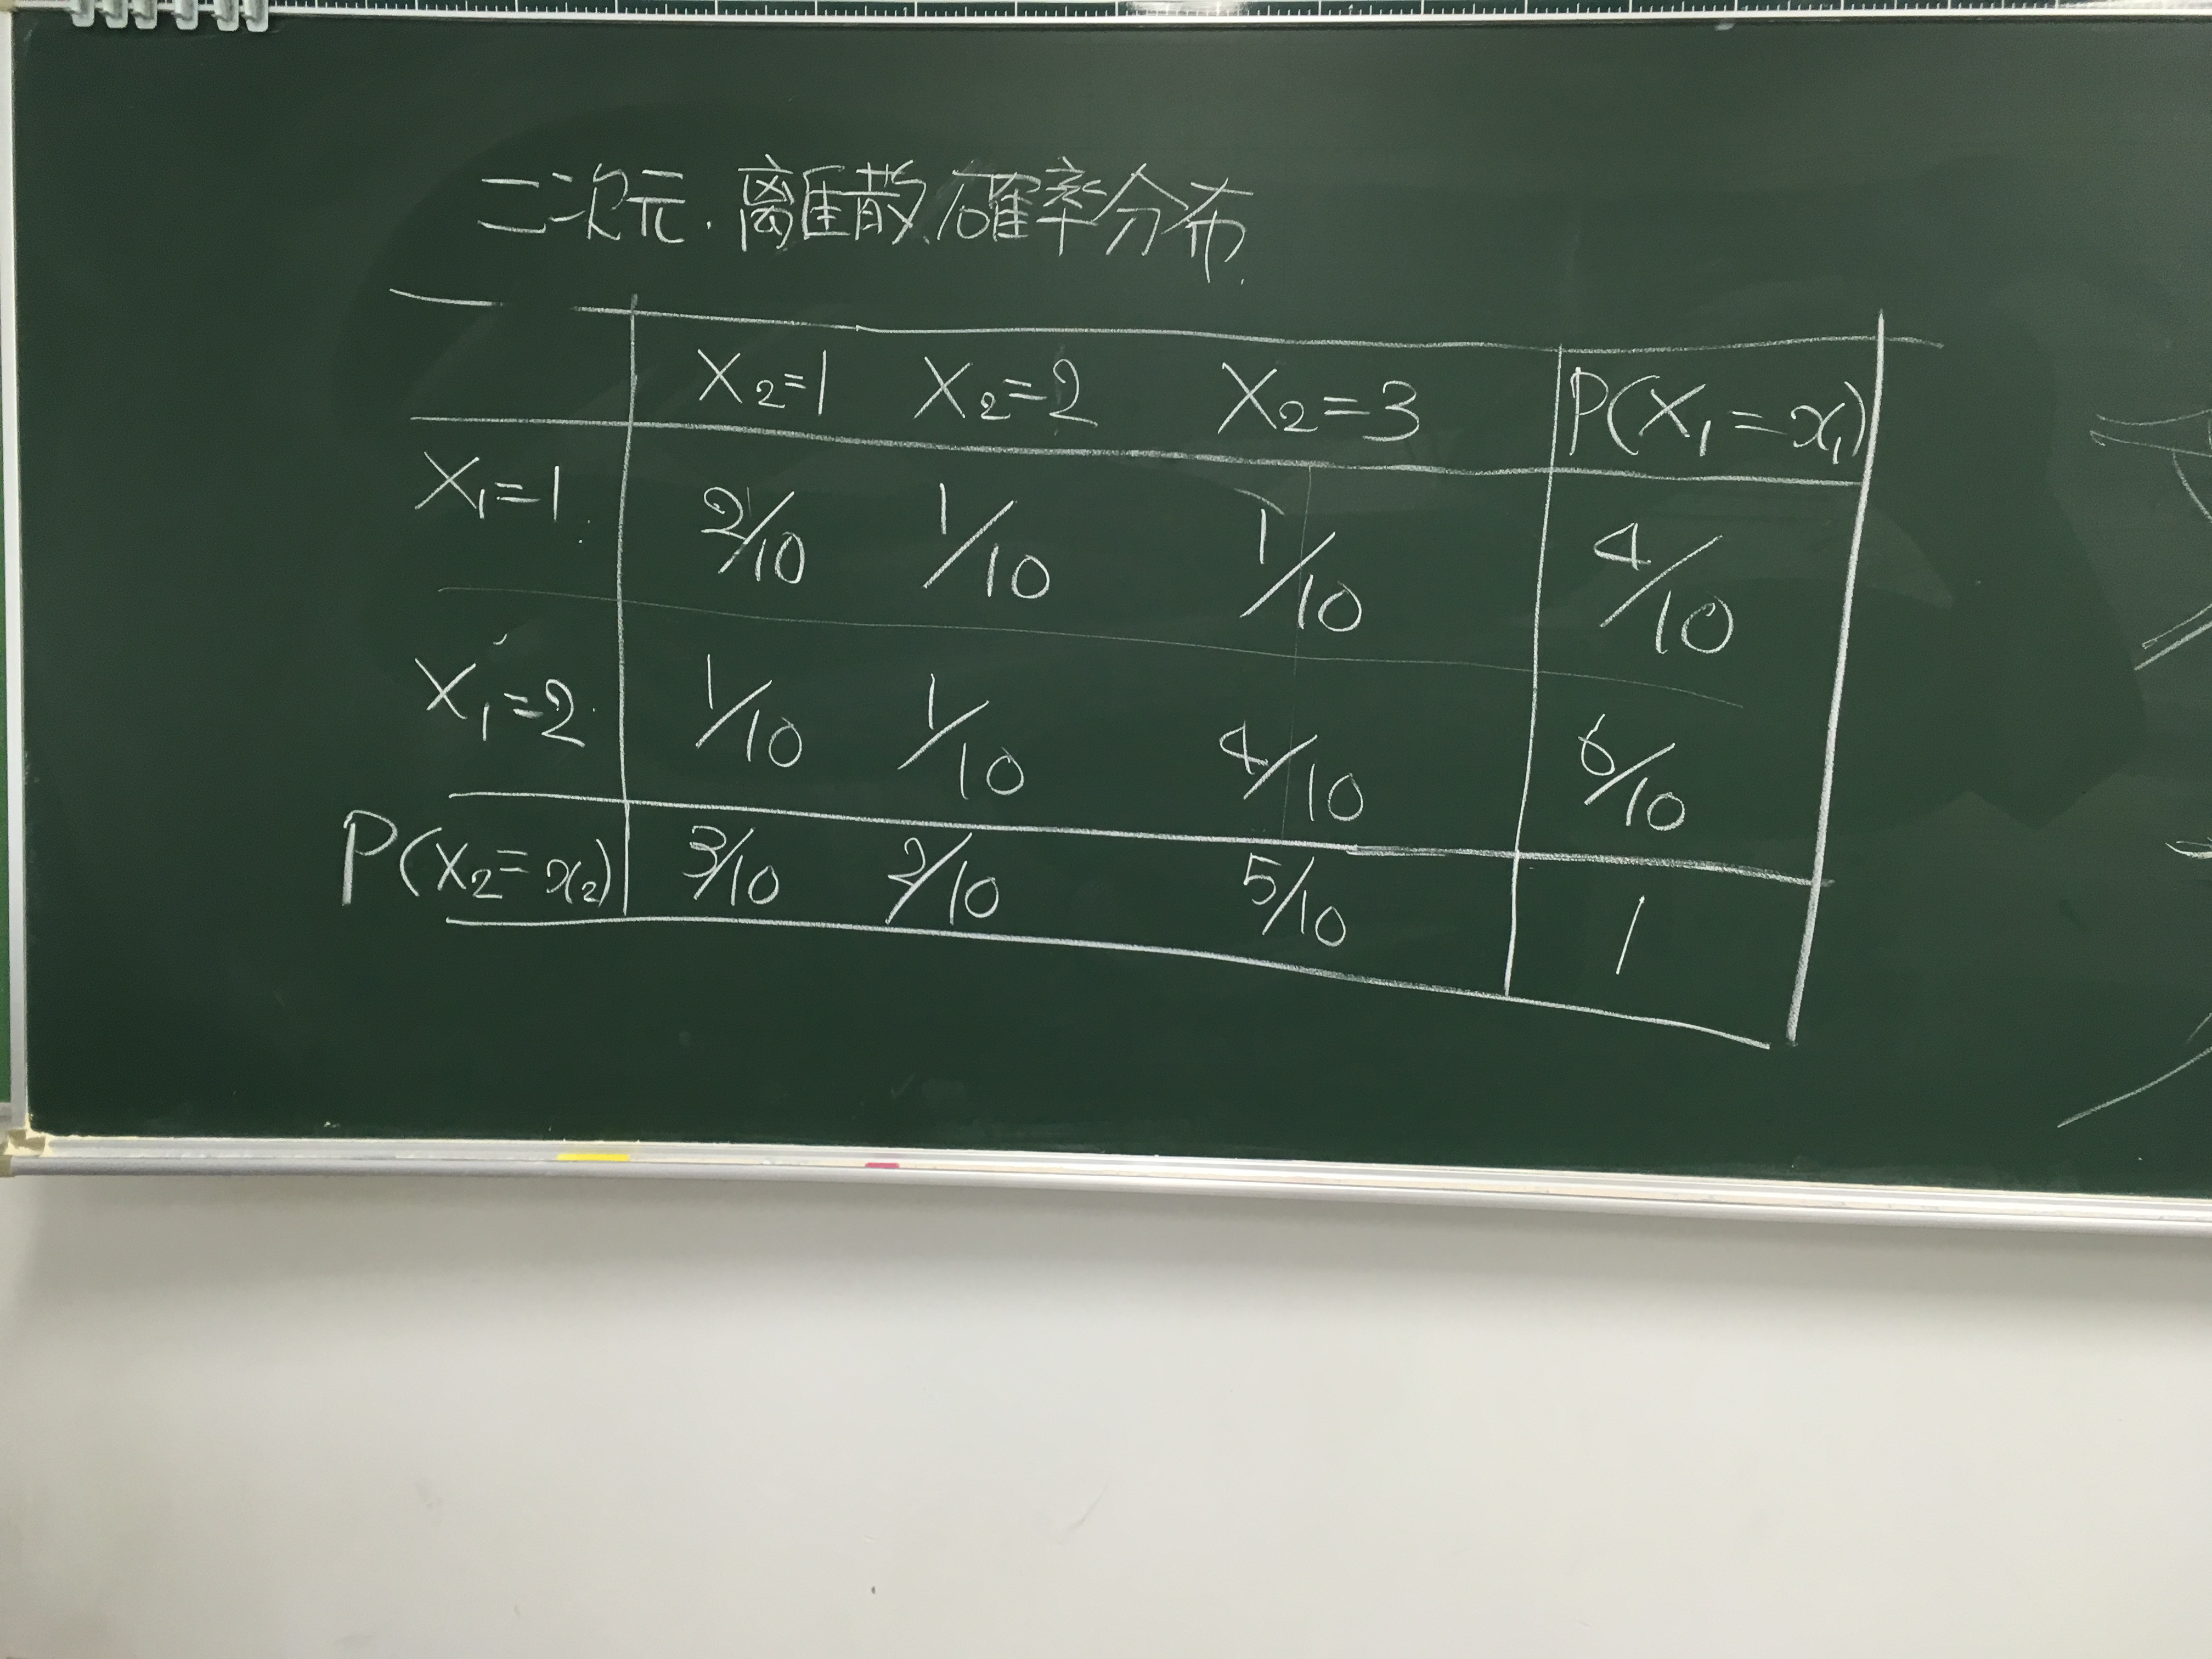 二次元.離散確率分布.
X₂=1 X₂=2 X₂=3 P(X₁=x₁)
X₁=1 2/10 1/10 1/10 4/10
X₁=2 1/10 1/10 4/10 6/10
P(X₂=x₂) 3/10 2/10 5/10 1